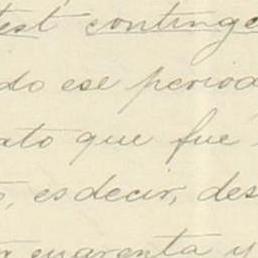 test continge
do ese period
ato que fue
, es decir, des
cuarenta y